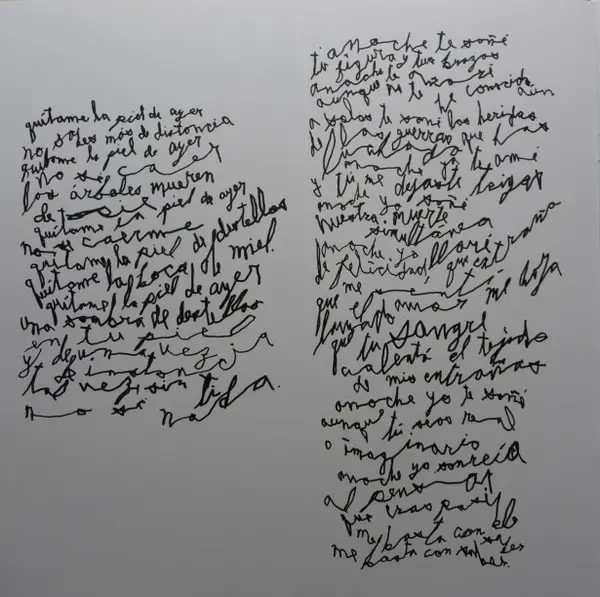 quítame la piel de ayer
no sabes más de distancia
quítame la piel de ayer
no sé caer
los árboles mueren
de pie
quítame la piel de ayer
no sé caerme
quítame la piel de destellos
quítame la boca de miel.
quítame la piel de ayer
una sombra de destellos
en tu piel
y de una vez
tu instancia
tal vez sin ti
no sé nada.
anoche te soñé
tu figura y tus brazos
anoche te
aunque no te he conocido aún
a solas te soñé las heridas
de las guerras que has
anoche yo te amé
y tú me dejaste
anoche yo soñé
nuestra muerte
simultánea
anoche yo lloré
de felicidad, que extraño
me sentí
que el amor me haya
llamado
que tu sangre
calentó el tejado
de mis entrañas
anoche yo te soñé
aunque tú seas real
o imaginario
anoche yo sonreía
al pensar
que eras
me basta con
me basta con